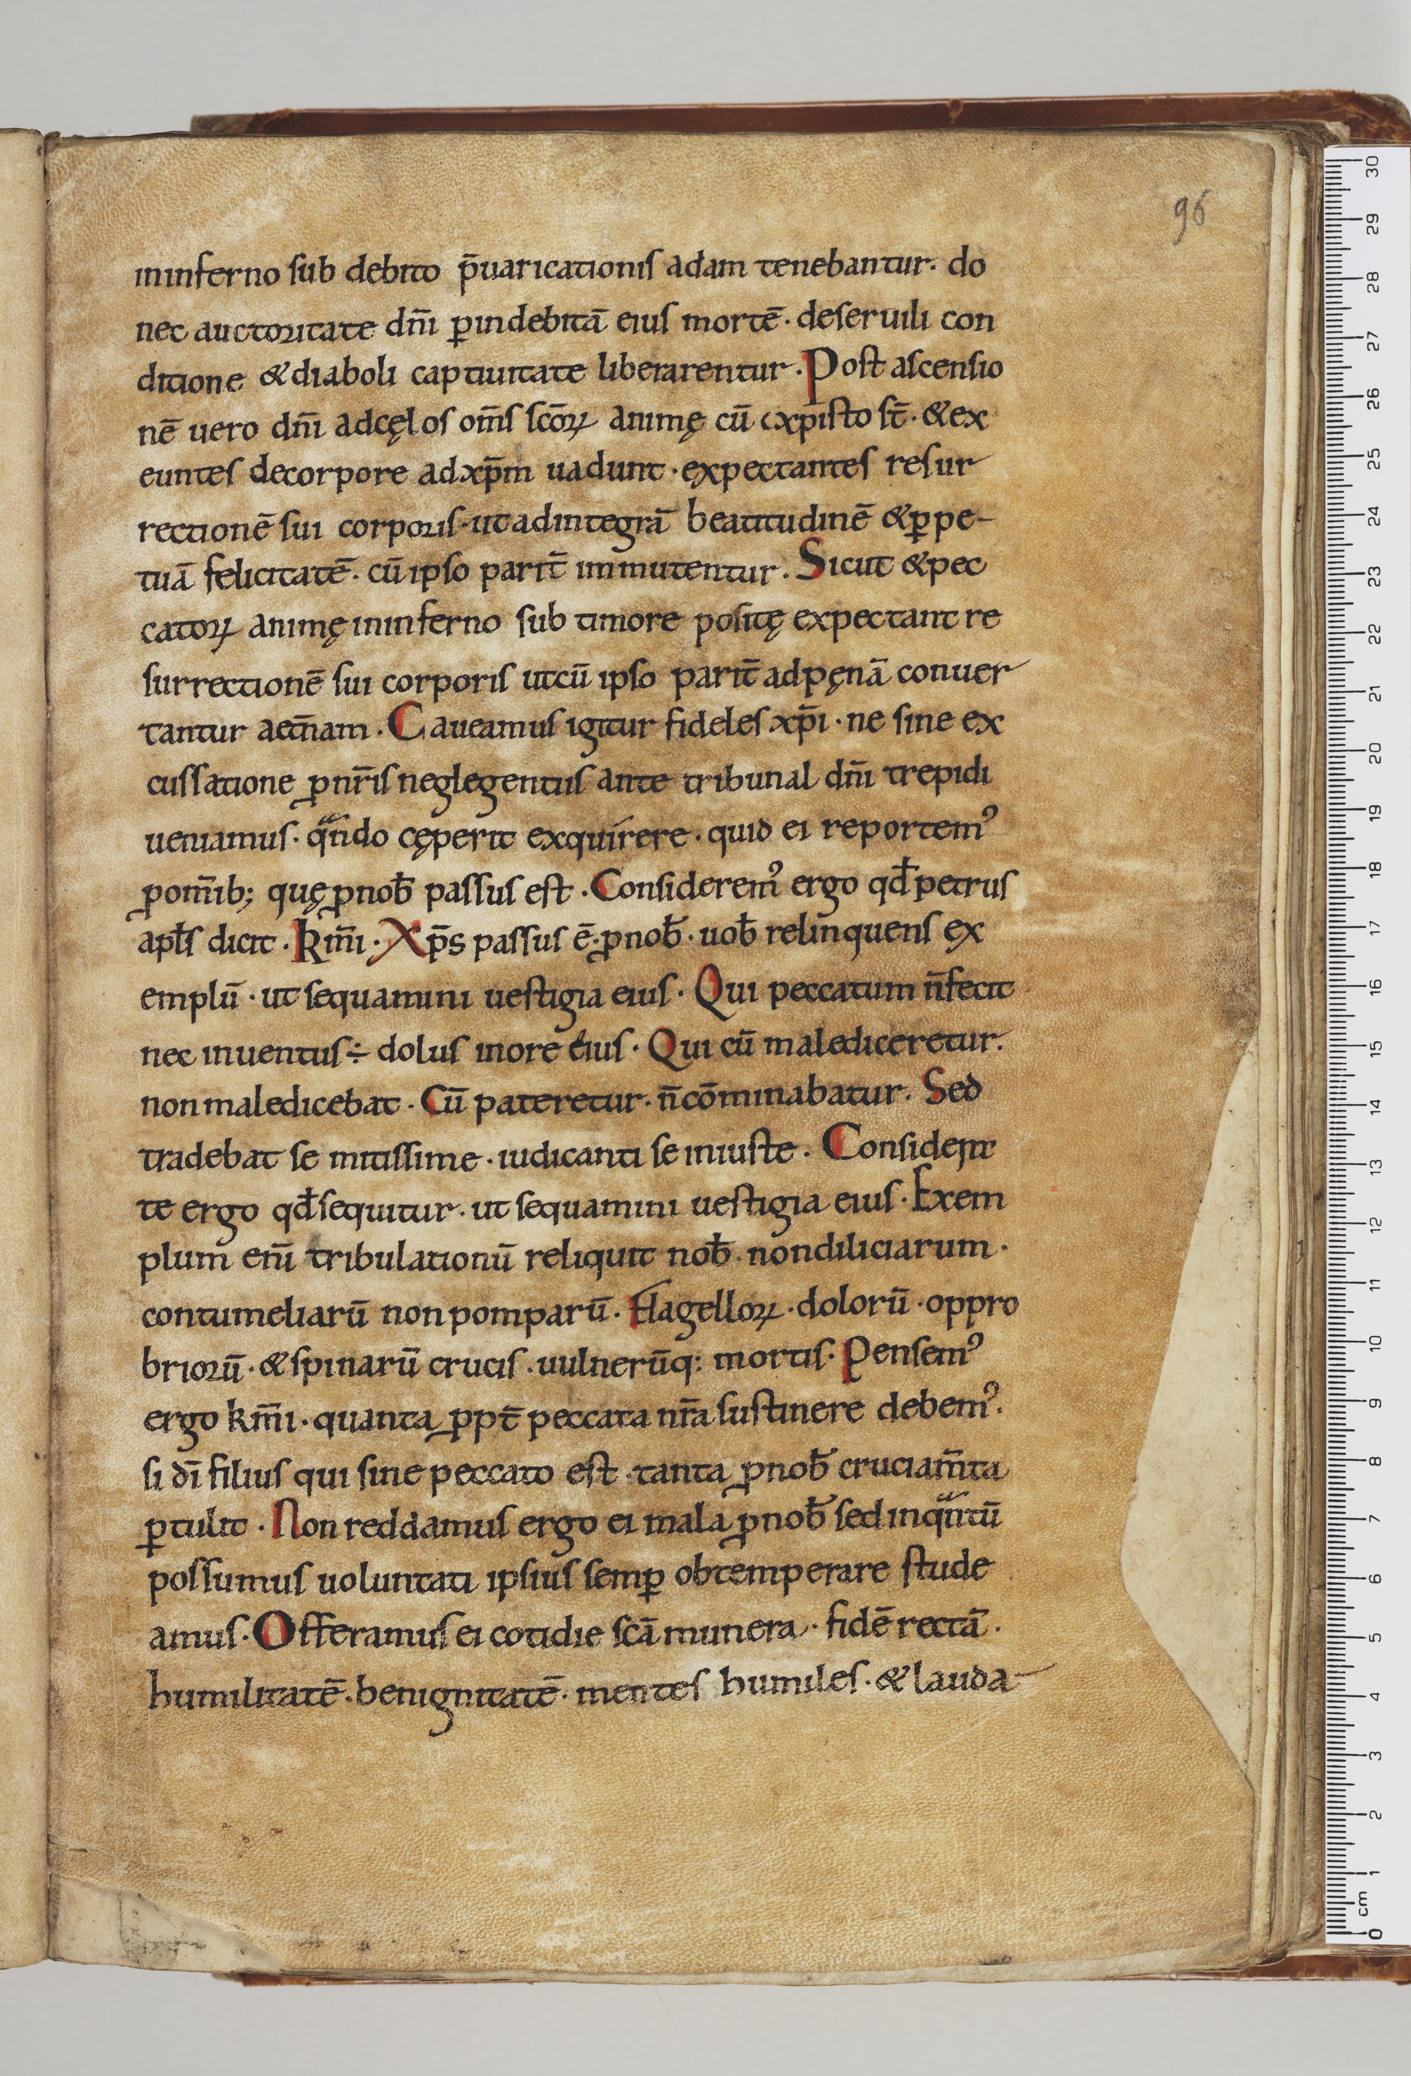 96
ininferno sub debito p̄uaricationis adam tenebantur· do
nec auctoritate dn̄i ꝑindebitā eius mortē· deseruili con
ditione &diaboli captiuitate liberarentur· Post ascensio
nē uero dn̄i adcęlos om̄s sc̄oꝝ animę cū xp̄isto st̄· &ex
euntes decorpore adxp̄m uadunt· expectantes resur
rectionē sui corporis· utadintegrā beatitudinē &ꝑpe-
tuā felicitatē· cū ipso parit̄ immutentur· Sicut &pec
catoꝝ animę ininferno sub timore positę expectant re
surrectionē sui corporis utcū ipso parit̄ adpęnā conuer
tantur aet̄nam· Caueamus igitur fideles xp̄i· ne sine ex
cussatione ꝓnr̄is neglegentiis ante tribunal dn̄i trepidi
ueniamus· qᷓndo cęperit exquirere· quid ei reportemꝰ
ꝓom̄ib; quę ꝓnob̄ passus est· Consideremꝰ ergo qđ petrus
apl̄s dicit· Km̄i· Xp̄s passus ē· ꝓnob̄· uob̄ relinquens ex
emplū· ut sequamini uestigia eius· Qui peccatum n̄fecit
nec inuentus÷ dolus inore eius· Qui cū malediceretur·
non maledicebat· Cū pateretur· n̄cōminabatur· Sed
tradebat se mitissime· iudicanti se iniuste· Considera
te ergo qđ sequitur· ut sequamini uestigia eius· Exem
plum eni̅ tribulationū reliquit nob̄· nondiliciarum·
contumeliarū non pomparū· Flagelloꝝ· dolorū· oppro
briorū· &spinarū crucis· uulnerūq: mortis· Pensemꝰ
ergo km̄i· quanta ꝓpt̄ peccata nr̄a sustinere debemꝰ·
si dī filius qui sine peccato est· tanta ꝓnob̄ cruciam̄ta
ꝑtulit· Non reddamus ergo ei mala ꝓnob̄ sed inqᷓntū
possumus uoluntati ipsius semꝑ obtemperare stude
amus· Offeramus ei cotidie sc̄ā munera· fidē rectā·
humilitatē· benignitatē· mentes humiles· &lauda
30
29
28
27
26
25
24
23
22
21
20
19
18
17
16
15
14
13
12
11
10
9
8
7
6
5
4
3
2
1
cm
0